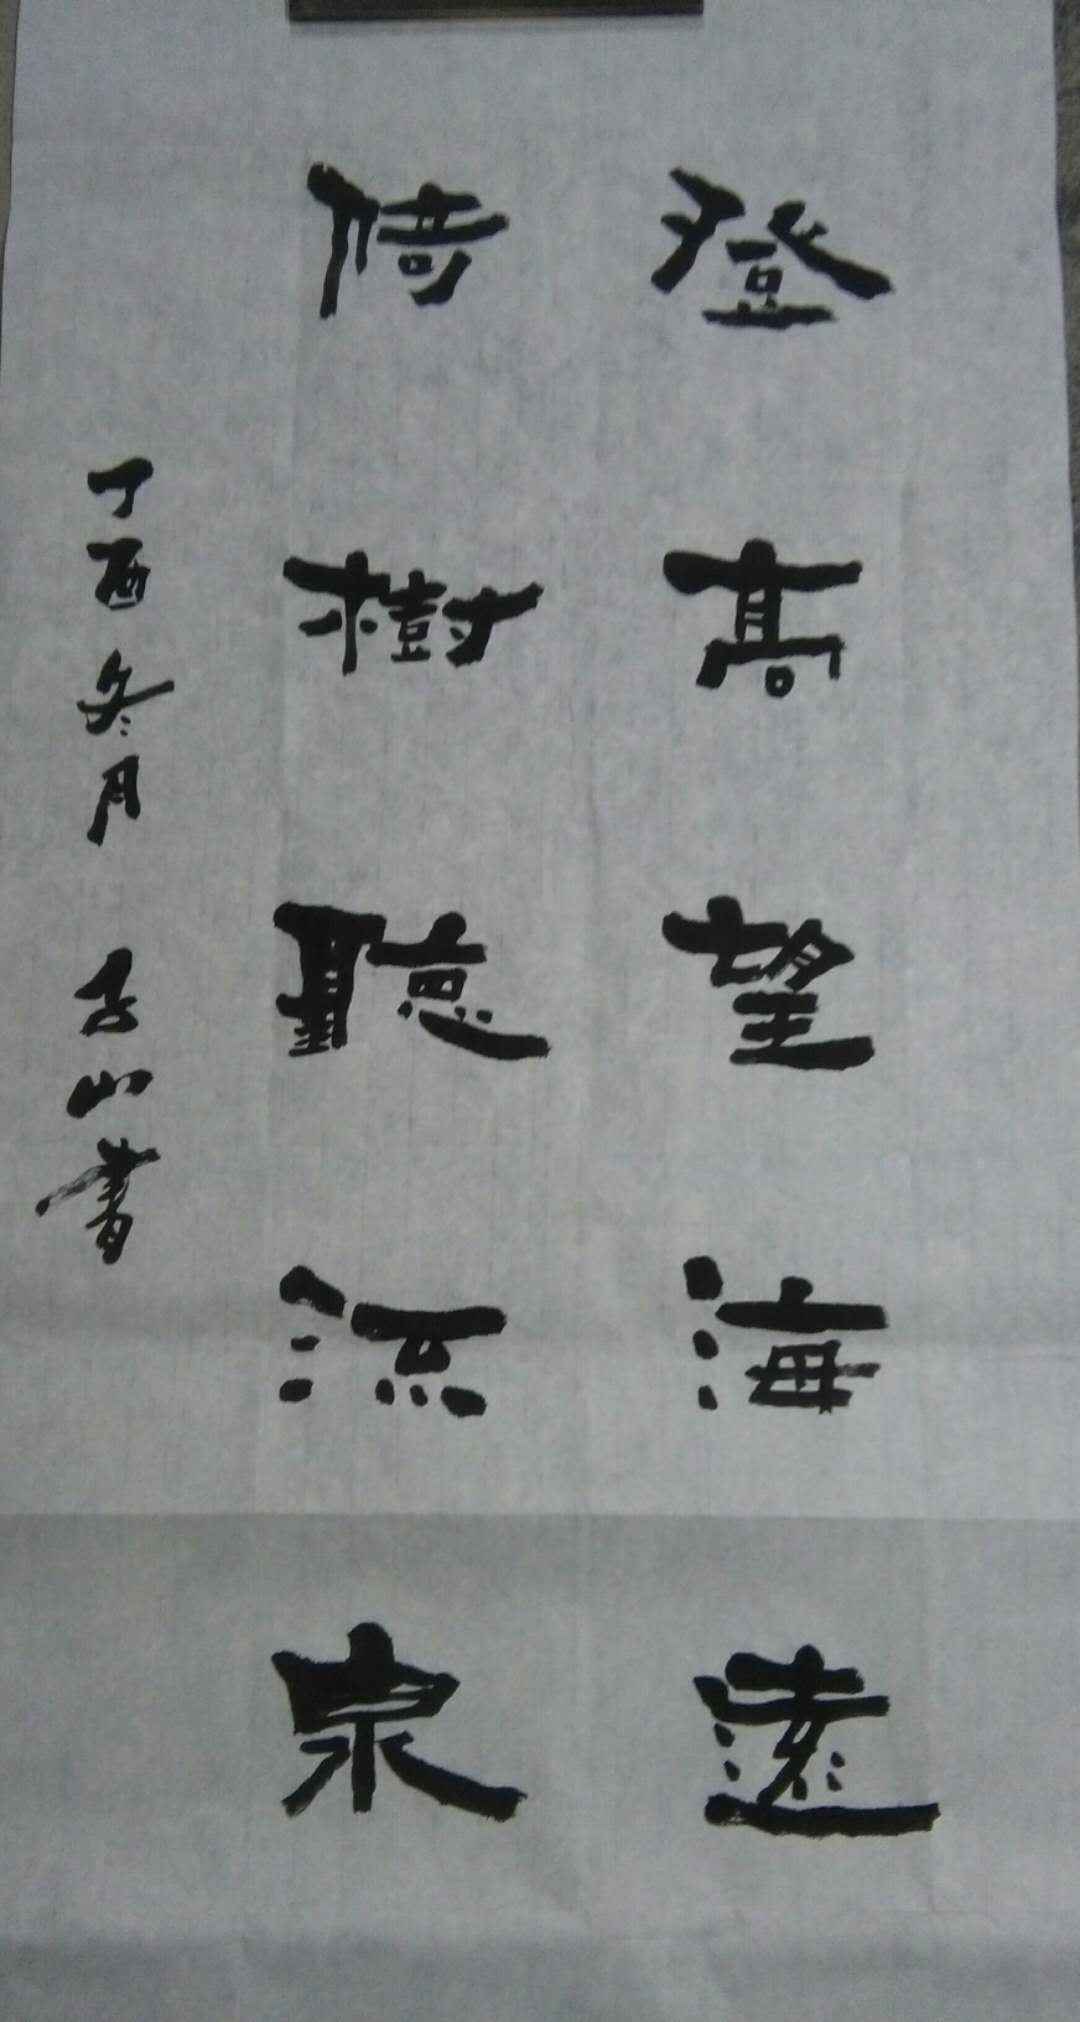 登高望海遠
倚樹聽流泉
丁酉冬月 子山書